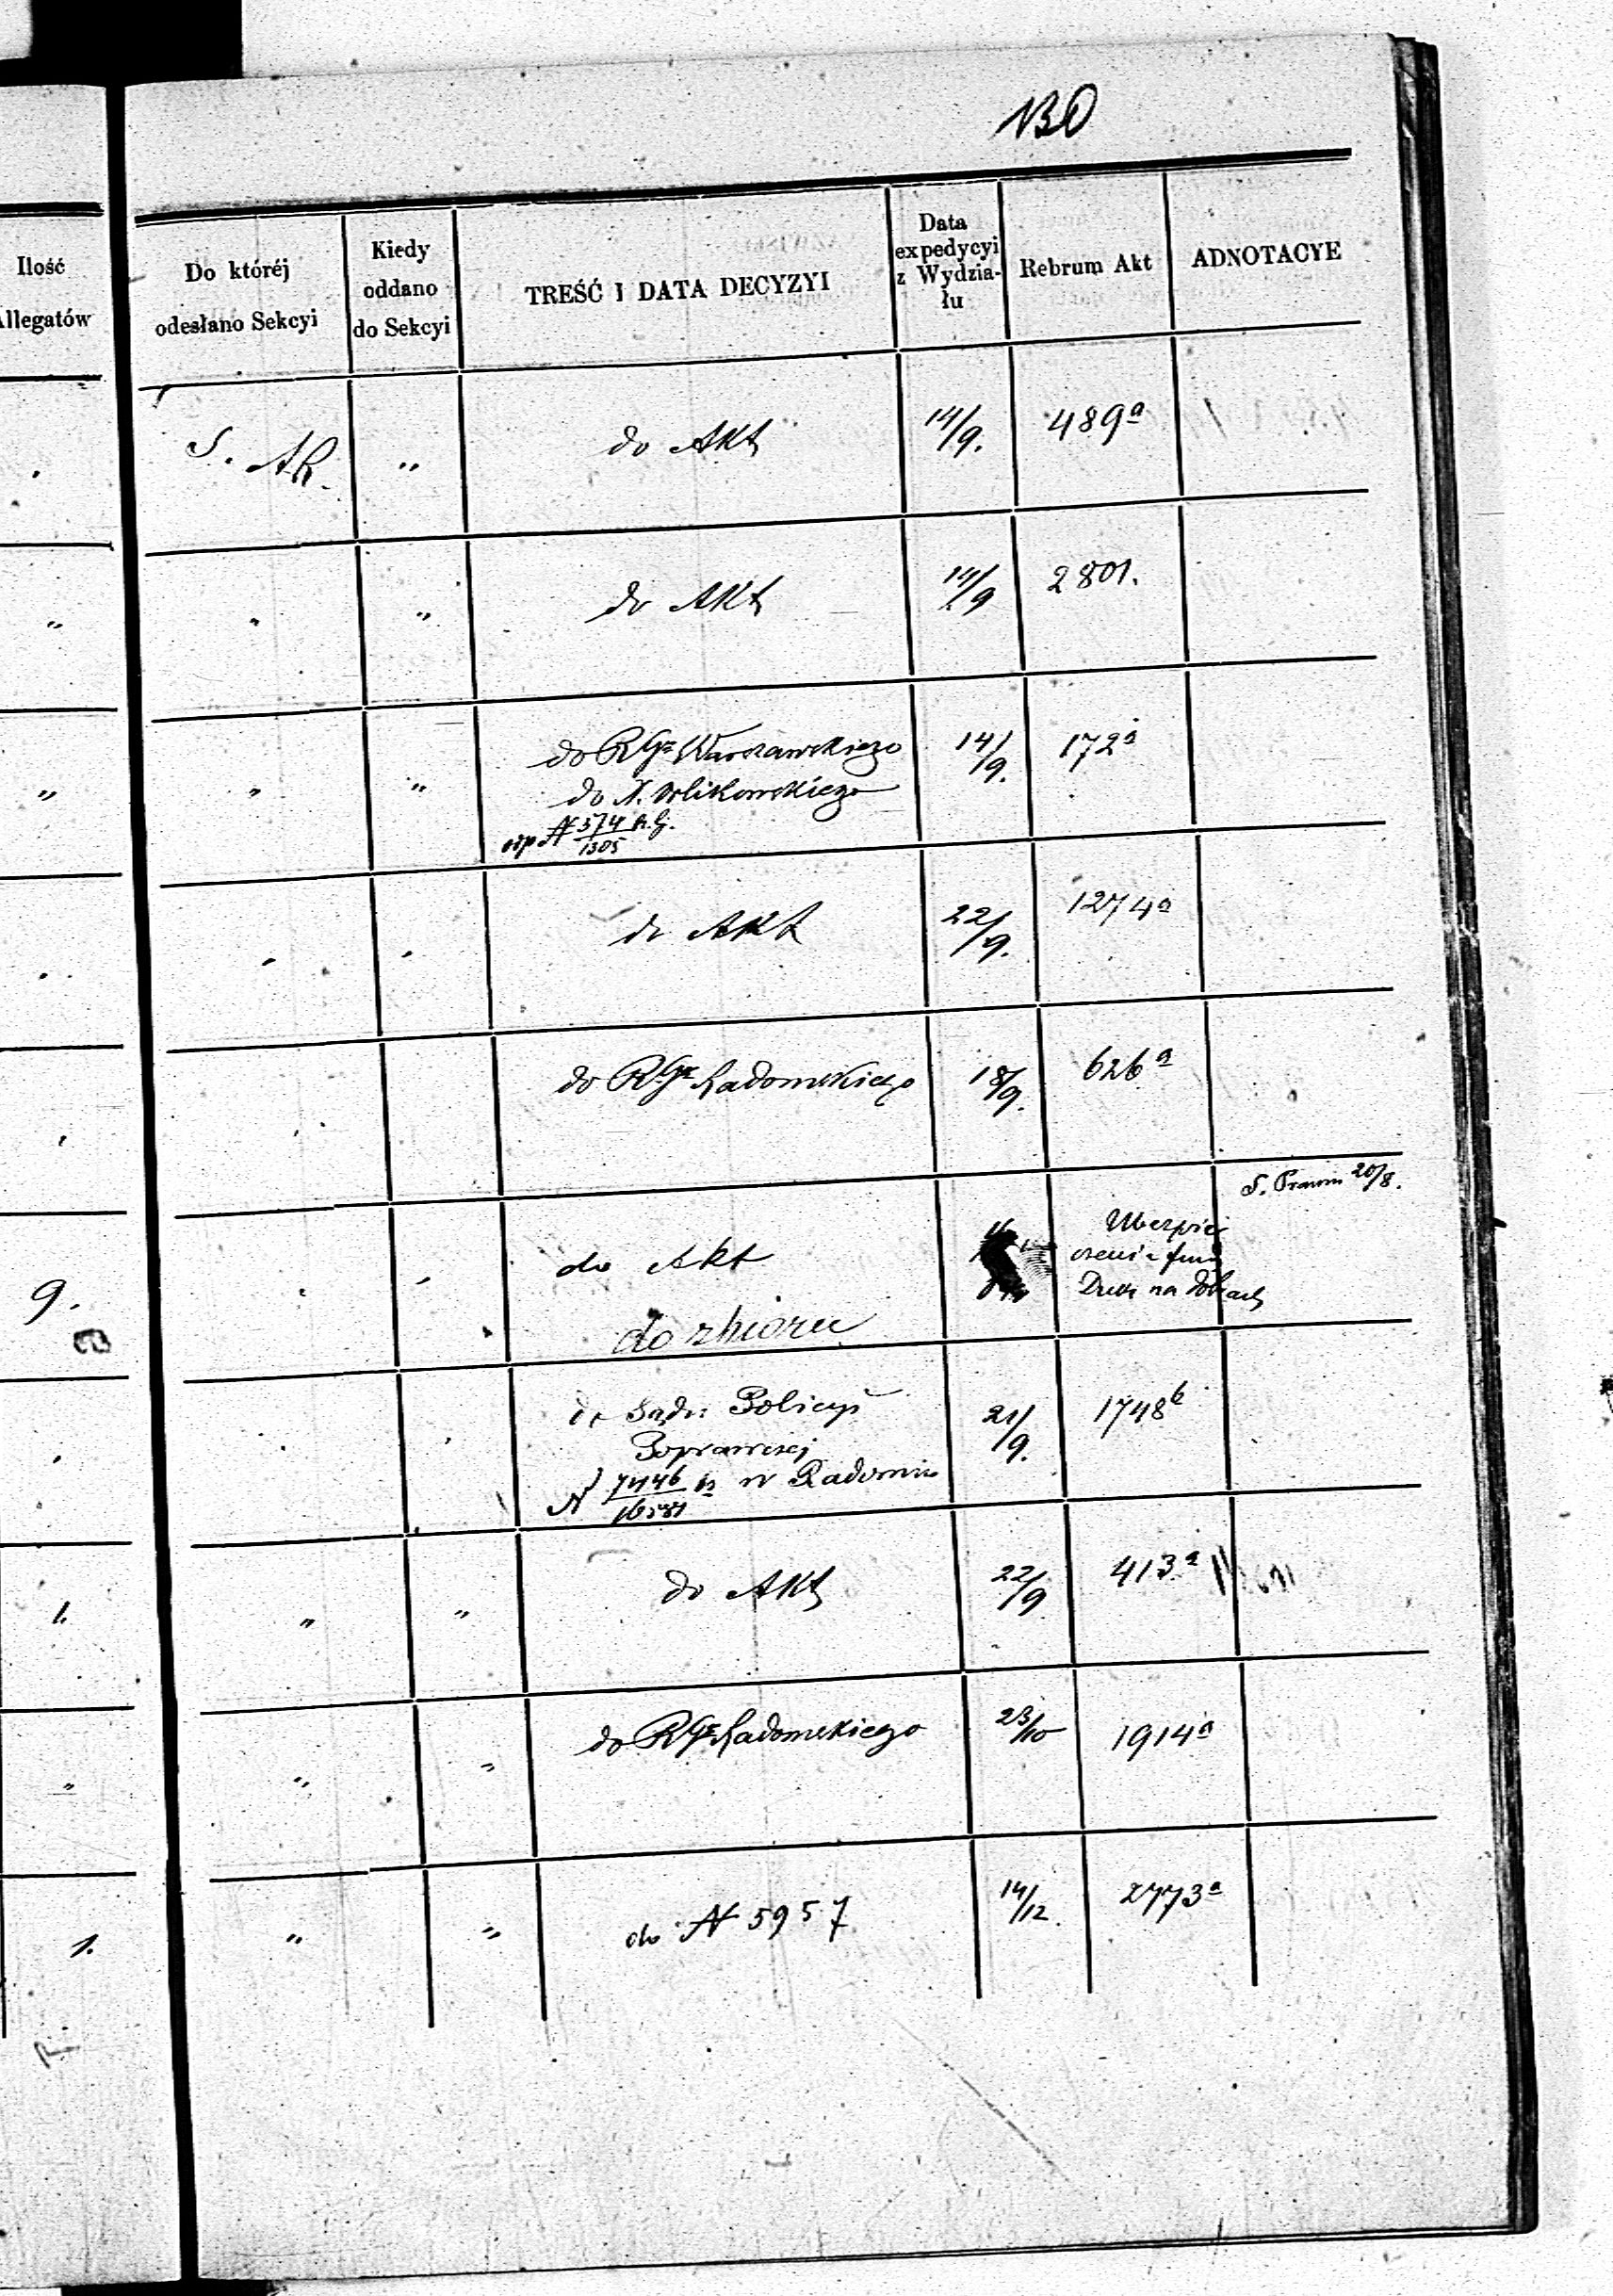 130
Ilość
Allegatów
Do któréj
odesłano Sekcyi
Kiedy
oddano
do Sekcyi
TREŚĆ I DATA DECYZYI
Data
expedycyi
z Wydzia-
łu
Rebrum Akt
ADNOTACYE
S. do Akt 14/9. 489a
" " " do Akt 14/9 2801.
" " " do RGu Warszawskiego 14/9. 172a
do
N 574/1305 R.G.
do Akt 22/9. 1274a
do RGu Radomskiego 18/9. 626a
S. Prawn 20/8.
9. do Akt Ubezpie
czenie fund
na Dobrach
do zbioru
do Sądu Policyi 21/9. 1748b
Poprawczej
N w Radomiu
1. " " do Akt 22/9 413a
" " " do RGu Radomskiego 23/10 1914a
1. " " do N 5957 14/12. 2773a